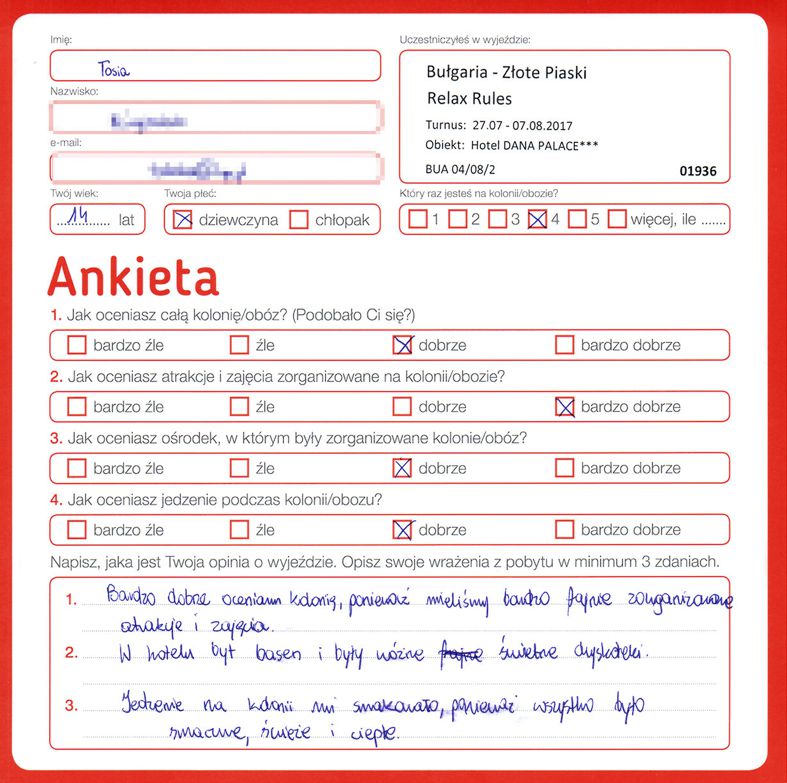 Imię:
Tosia
Nazwisko:
e-mail:
Twój wiek:
14 lat
Twoja płeć:
dziewczyna chłopak
Uczestniczyłeś w wyjeździe:
Bułgaria - Złote Piaski
Relax Rules
Turnus: 27.07 - 07.08.2017
Obiekt: Hotel DANA PALACE***
BUA 04/08/2 01936
Który raz jesteś na kolonii/obozie?
1 2 3 4 5 więcej, ile .......
Ankieta
1. Jak oceniasz całą kolonię/obóz? (Podobało Ci się?)
bardzo źle źle dobrze bardzo dobrze
2. Jak oceniasz atrakcje i zajęcia zorganizowane na kolonii/obozie?
bardzo źle źle dobrze bardzo dobrze
3. Jak oceniasz ośrodek, w którym były zorganizowane kolonie/obóz?
bardzo źle źle dobrze bardzo dobrze
4. Jak oceniasz jedzenie podczas kolonii/obozu?
bardzo źle źle dobrze bardzo dobrze
Napisz, jaka jest Twoja opinia o wyjeździe. Opisz swoje wrażenia z pobytu w minimum 3 zdaniach.
1. Bardzo dobrze oceniam kolonię, ponieważ mieliśmy bardzo fajnie zorganizowane
atrakcje i zajęcia.
2. W hotelu był basen i były różne fajne świetne dyskoteki.
3. Jedzenie na kolonii mi smakowało, ponieważ wszystko było
smaczne, świeże i ciepłe.